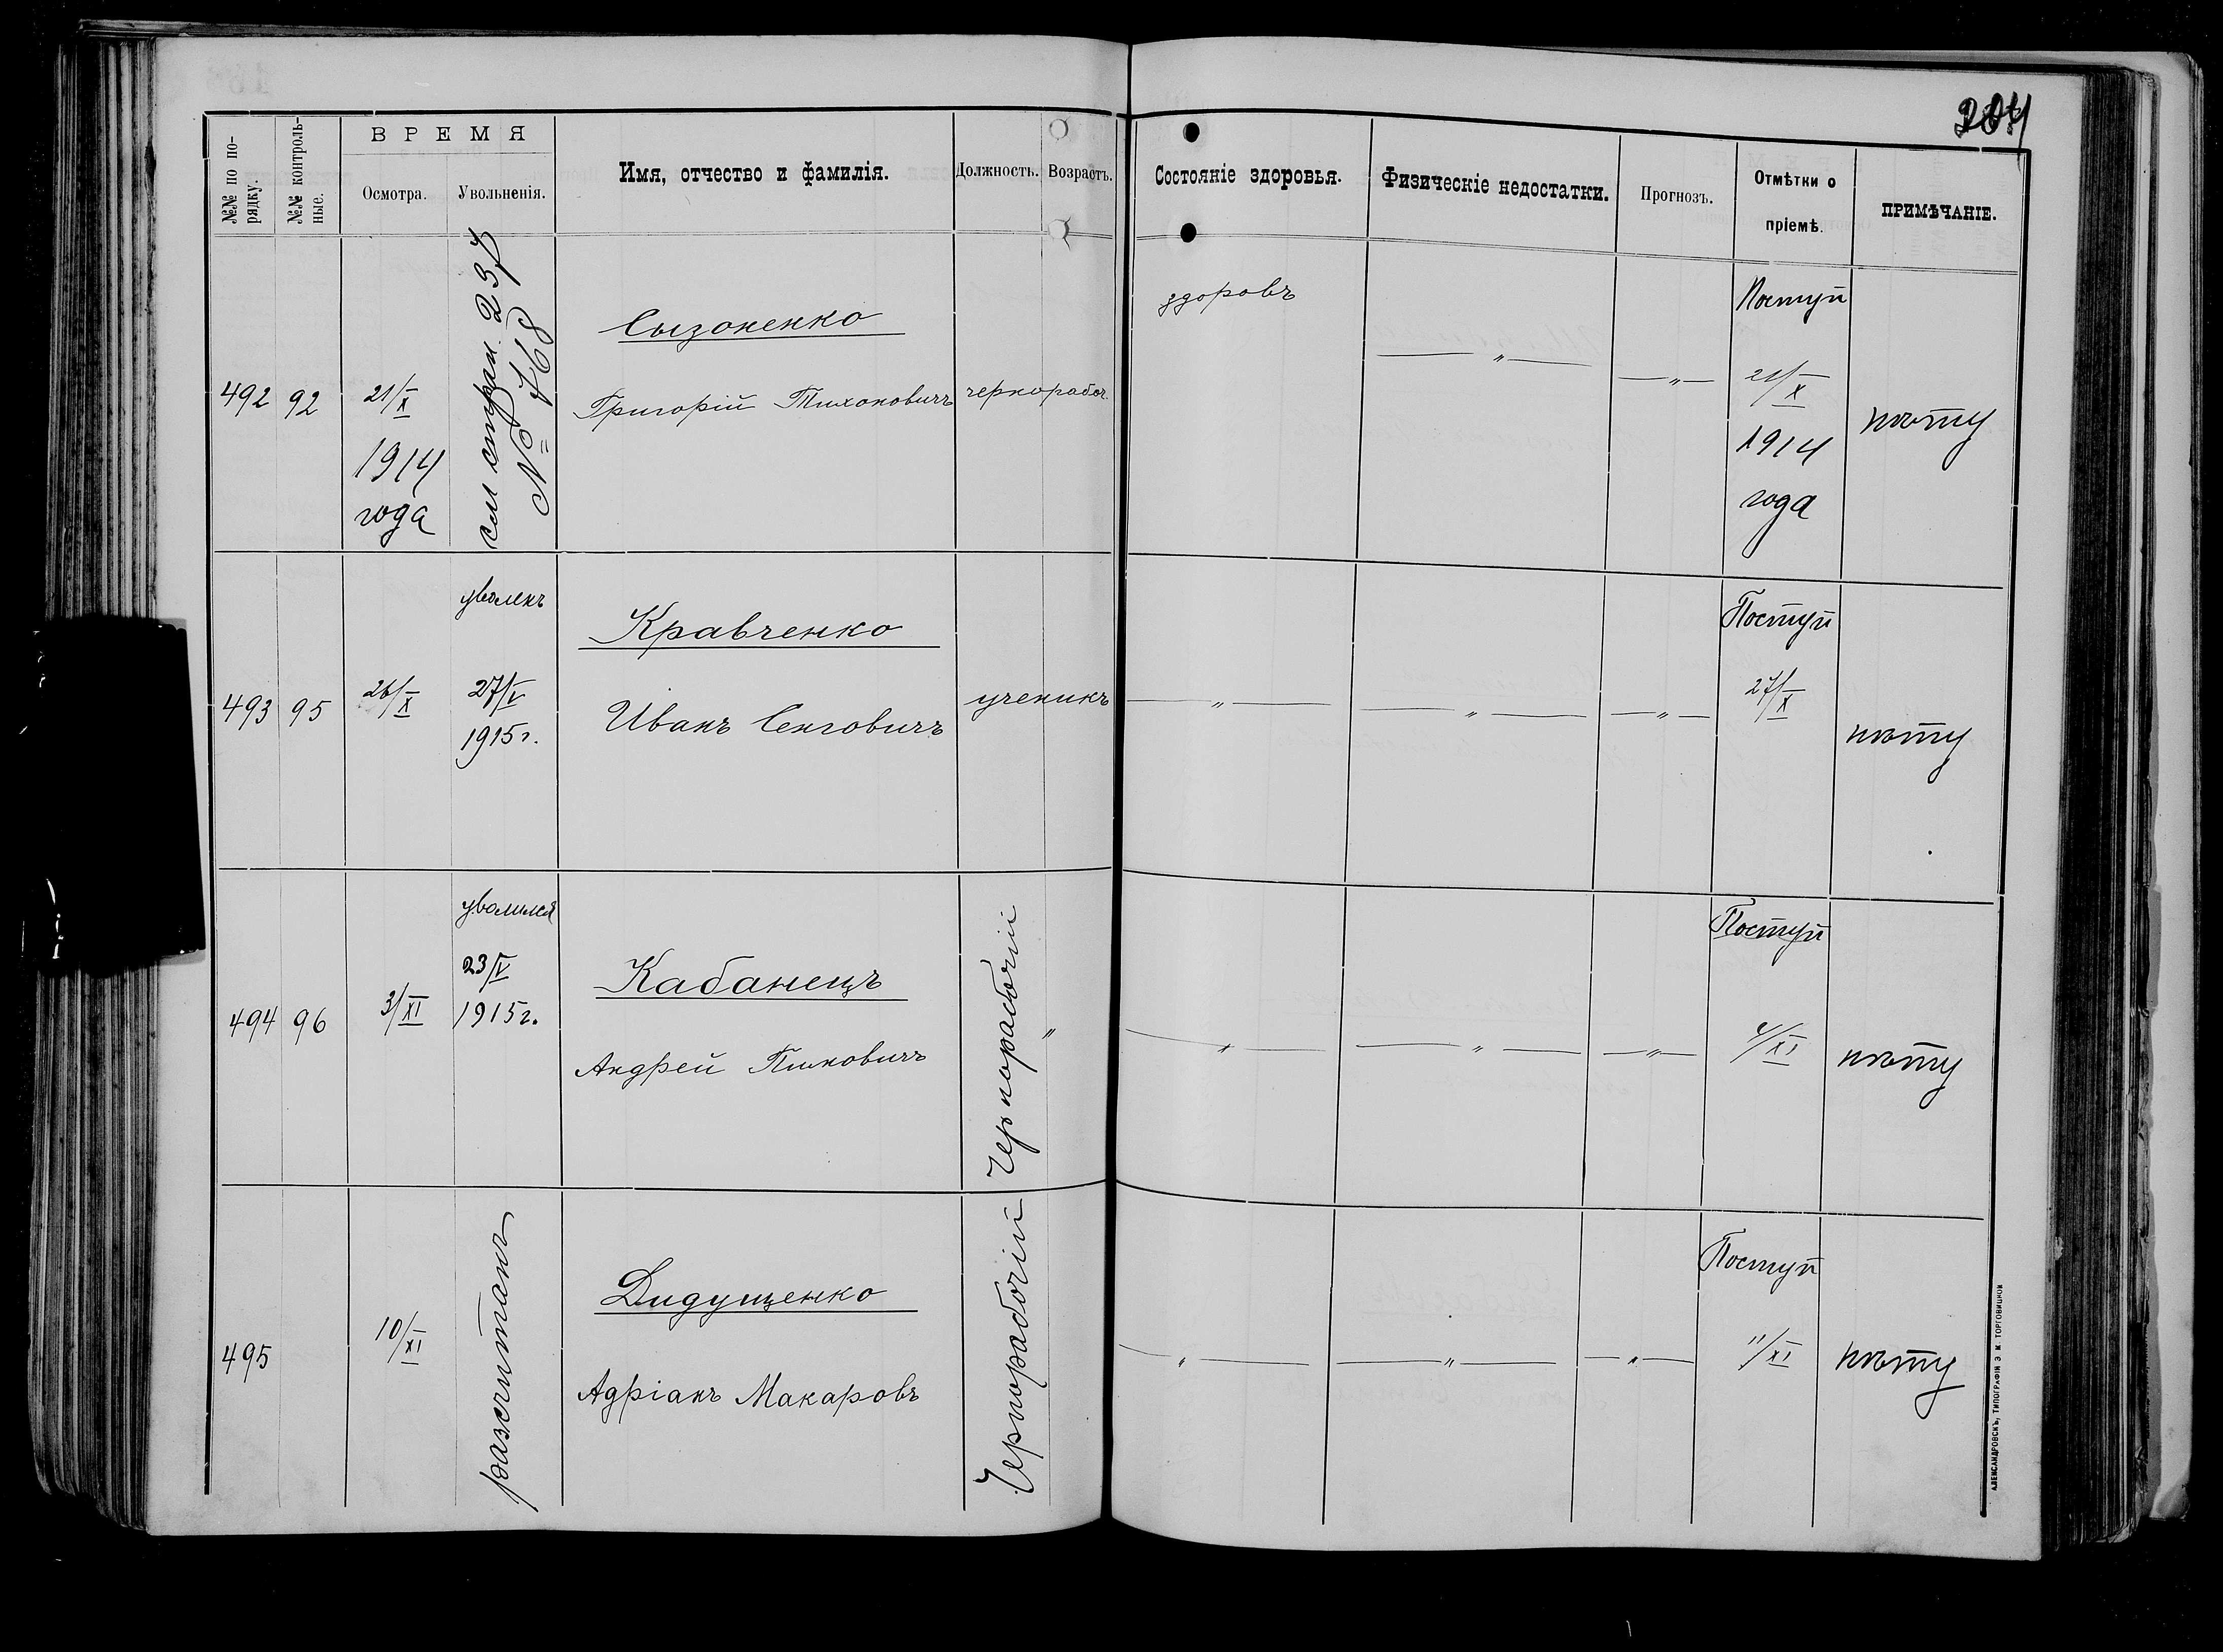 204
№№ по по-
рядку.
№№ контроль-
ные.
ВРЕМЯ
Осмотра.
Увольненія.
Имя, отчество и фамилія.
Должность.
Возрастъ.
Состояніе здоровья.
Физическіе недостатки.
Прогнозъ.
Отмѣтки о
пріемѣ.
ПРИМѢЧАНІЕ.
492 92
21/X
1914
года
см стран. 237
№ 768
Сызоненко
Григорій Тихоновичъ
чернорабоч.
здоровъ
— „ —
— „ —
Поступ
21/X
1914
года
нѣту
493 95
26/X
уволенъ
27/V
1915г.
Кравченко
Иванъ
ученикъ
— „ —
— „ —
— „ —
Поступ
27/X
нѣту
494 96
3/XI
уволился
23/V
1915г.
Кабанецъ
Андрей
Чернорабочій
„
— „ —
— „ —
— „ —
Поступ
4/XI
нѣту
495
10/XI
разсчитанъ
Дидущенко
Адріанъ Макаровъ
Чернорабочій
— „ —
— „ —
— „ —
Поступ
11/XI
нѣту
АЛЕКСАНДРОВСКЪ, ТИПОГРАФІЯ Э. М. ТОРГОВИЦКОЙ